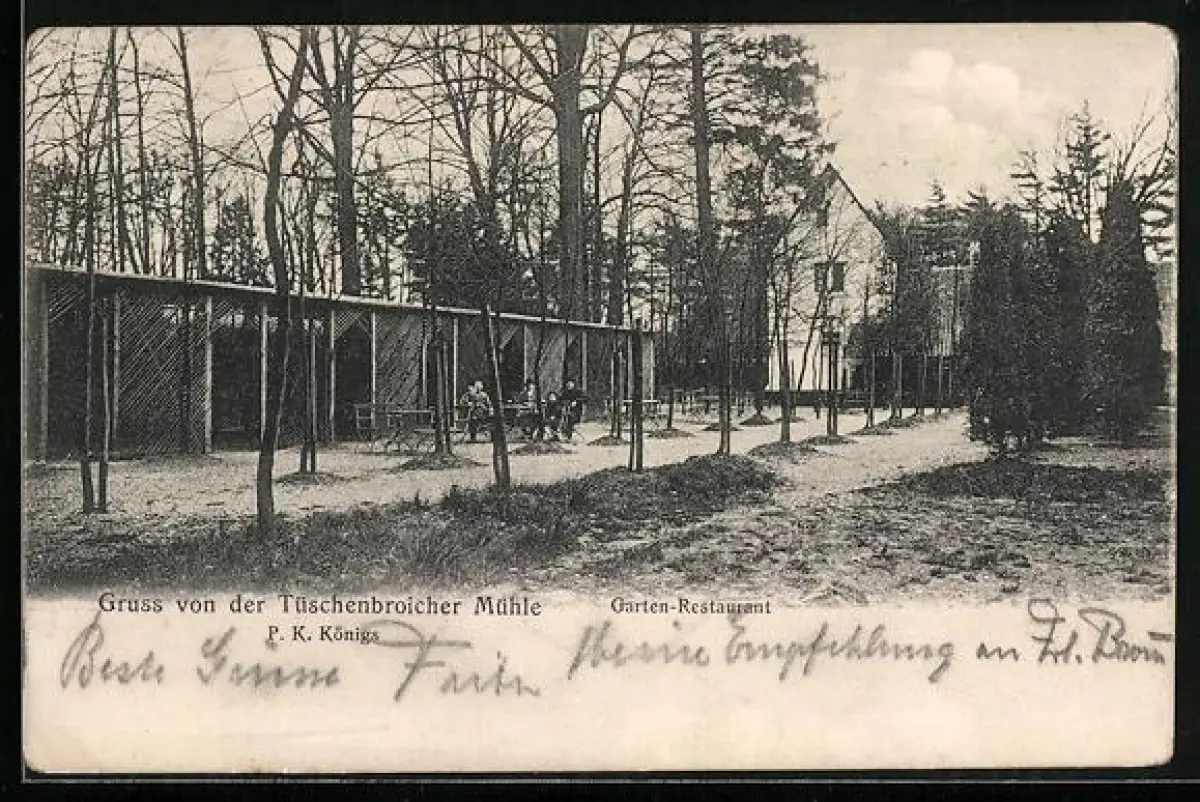 Gruss von der Tüschenbroicher Mühle
P. K. Königs
Garten-Restaurant
Beste Grüsse
Meine Empfehlung an Frl.